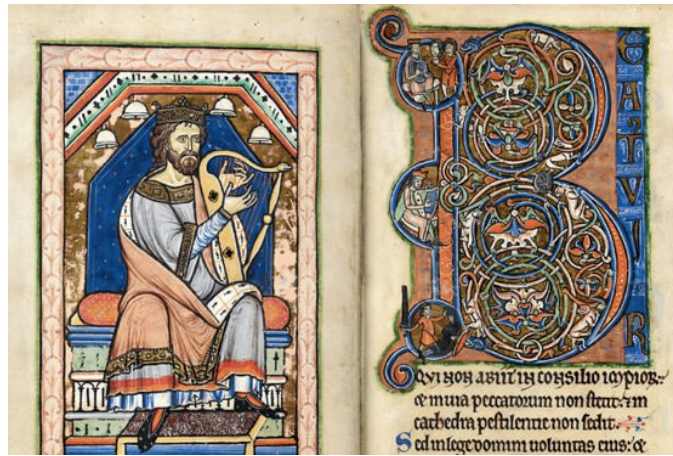 BEATVS VIR
Qui non abiit in consilio impior:
& in uia peccatorum non stetit: & in
cathedra pestilentie non sedit.
Sed in lege domini uoluntas eius: &